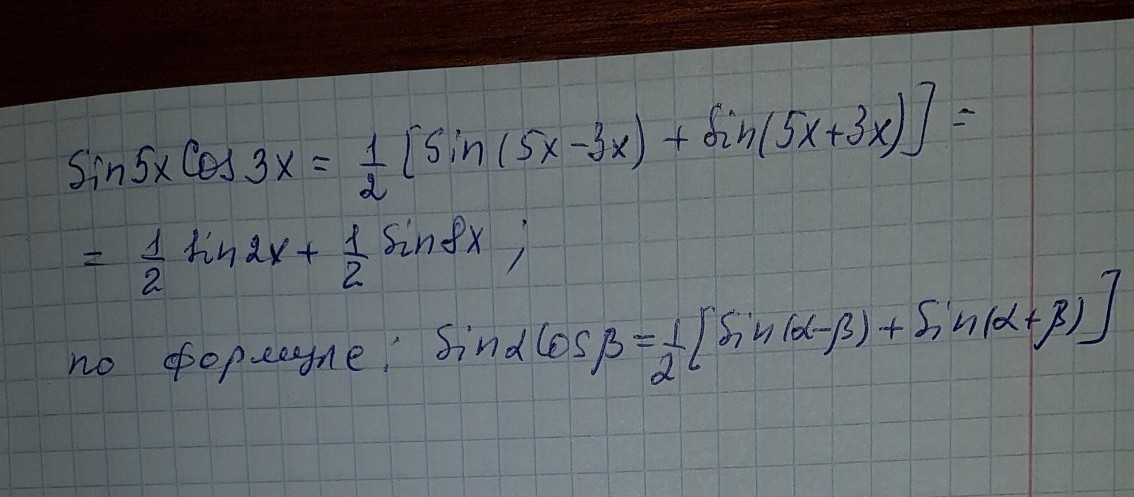 Sin5x Cos3x = 1/2 [Sin(5x-3x) + Sin(5x+3x)] =
= 1/2 sin2x + 1/2 Sin8x ;
по формуле: Sinα Cosβ = 1/2 [Sin(α-β) + Sin(α+β)]